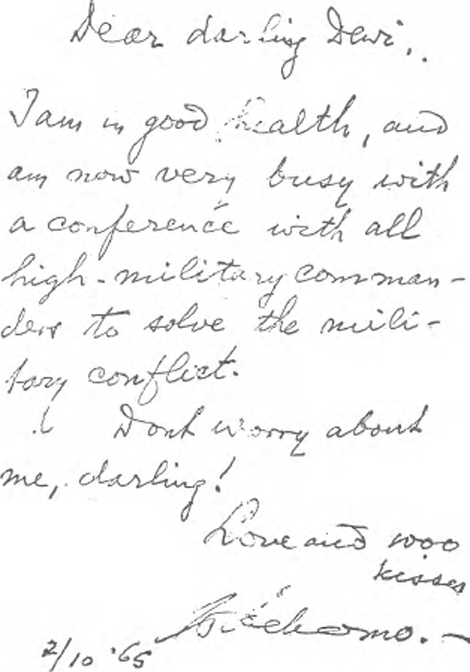 Dear darling Dewi,.
I am in good health, and
am now very busy with
a conference with all
high-military comman-
ders to solve the mili-
tary conflict.
Dont worry about
me, darling!
Love and 1000
kisses
Soekarno.-
2/10 '65